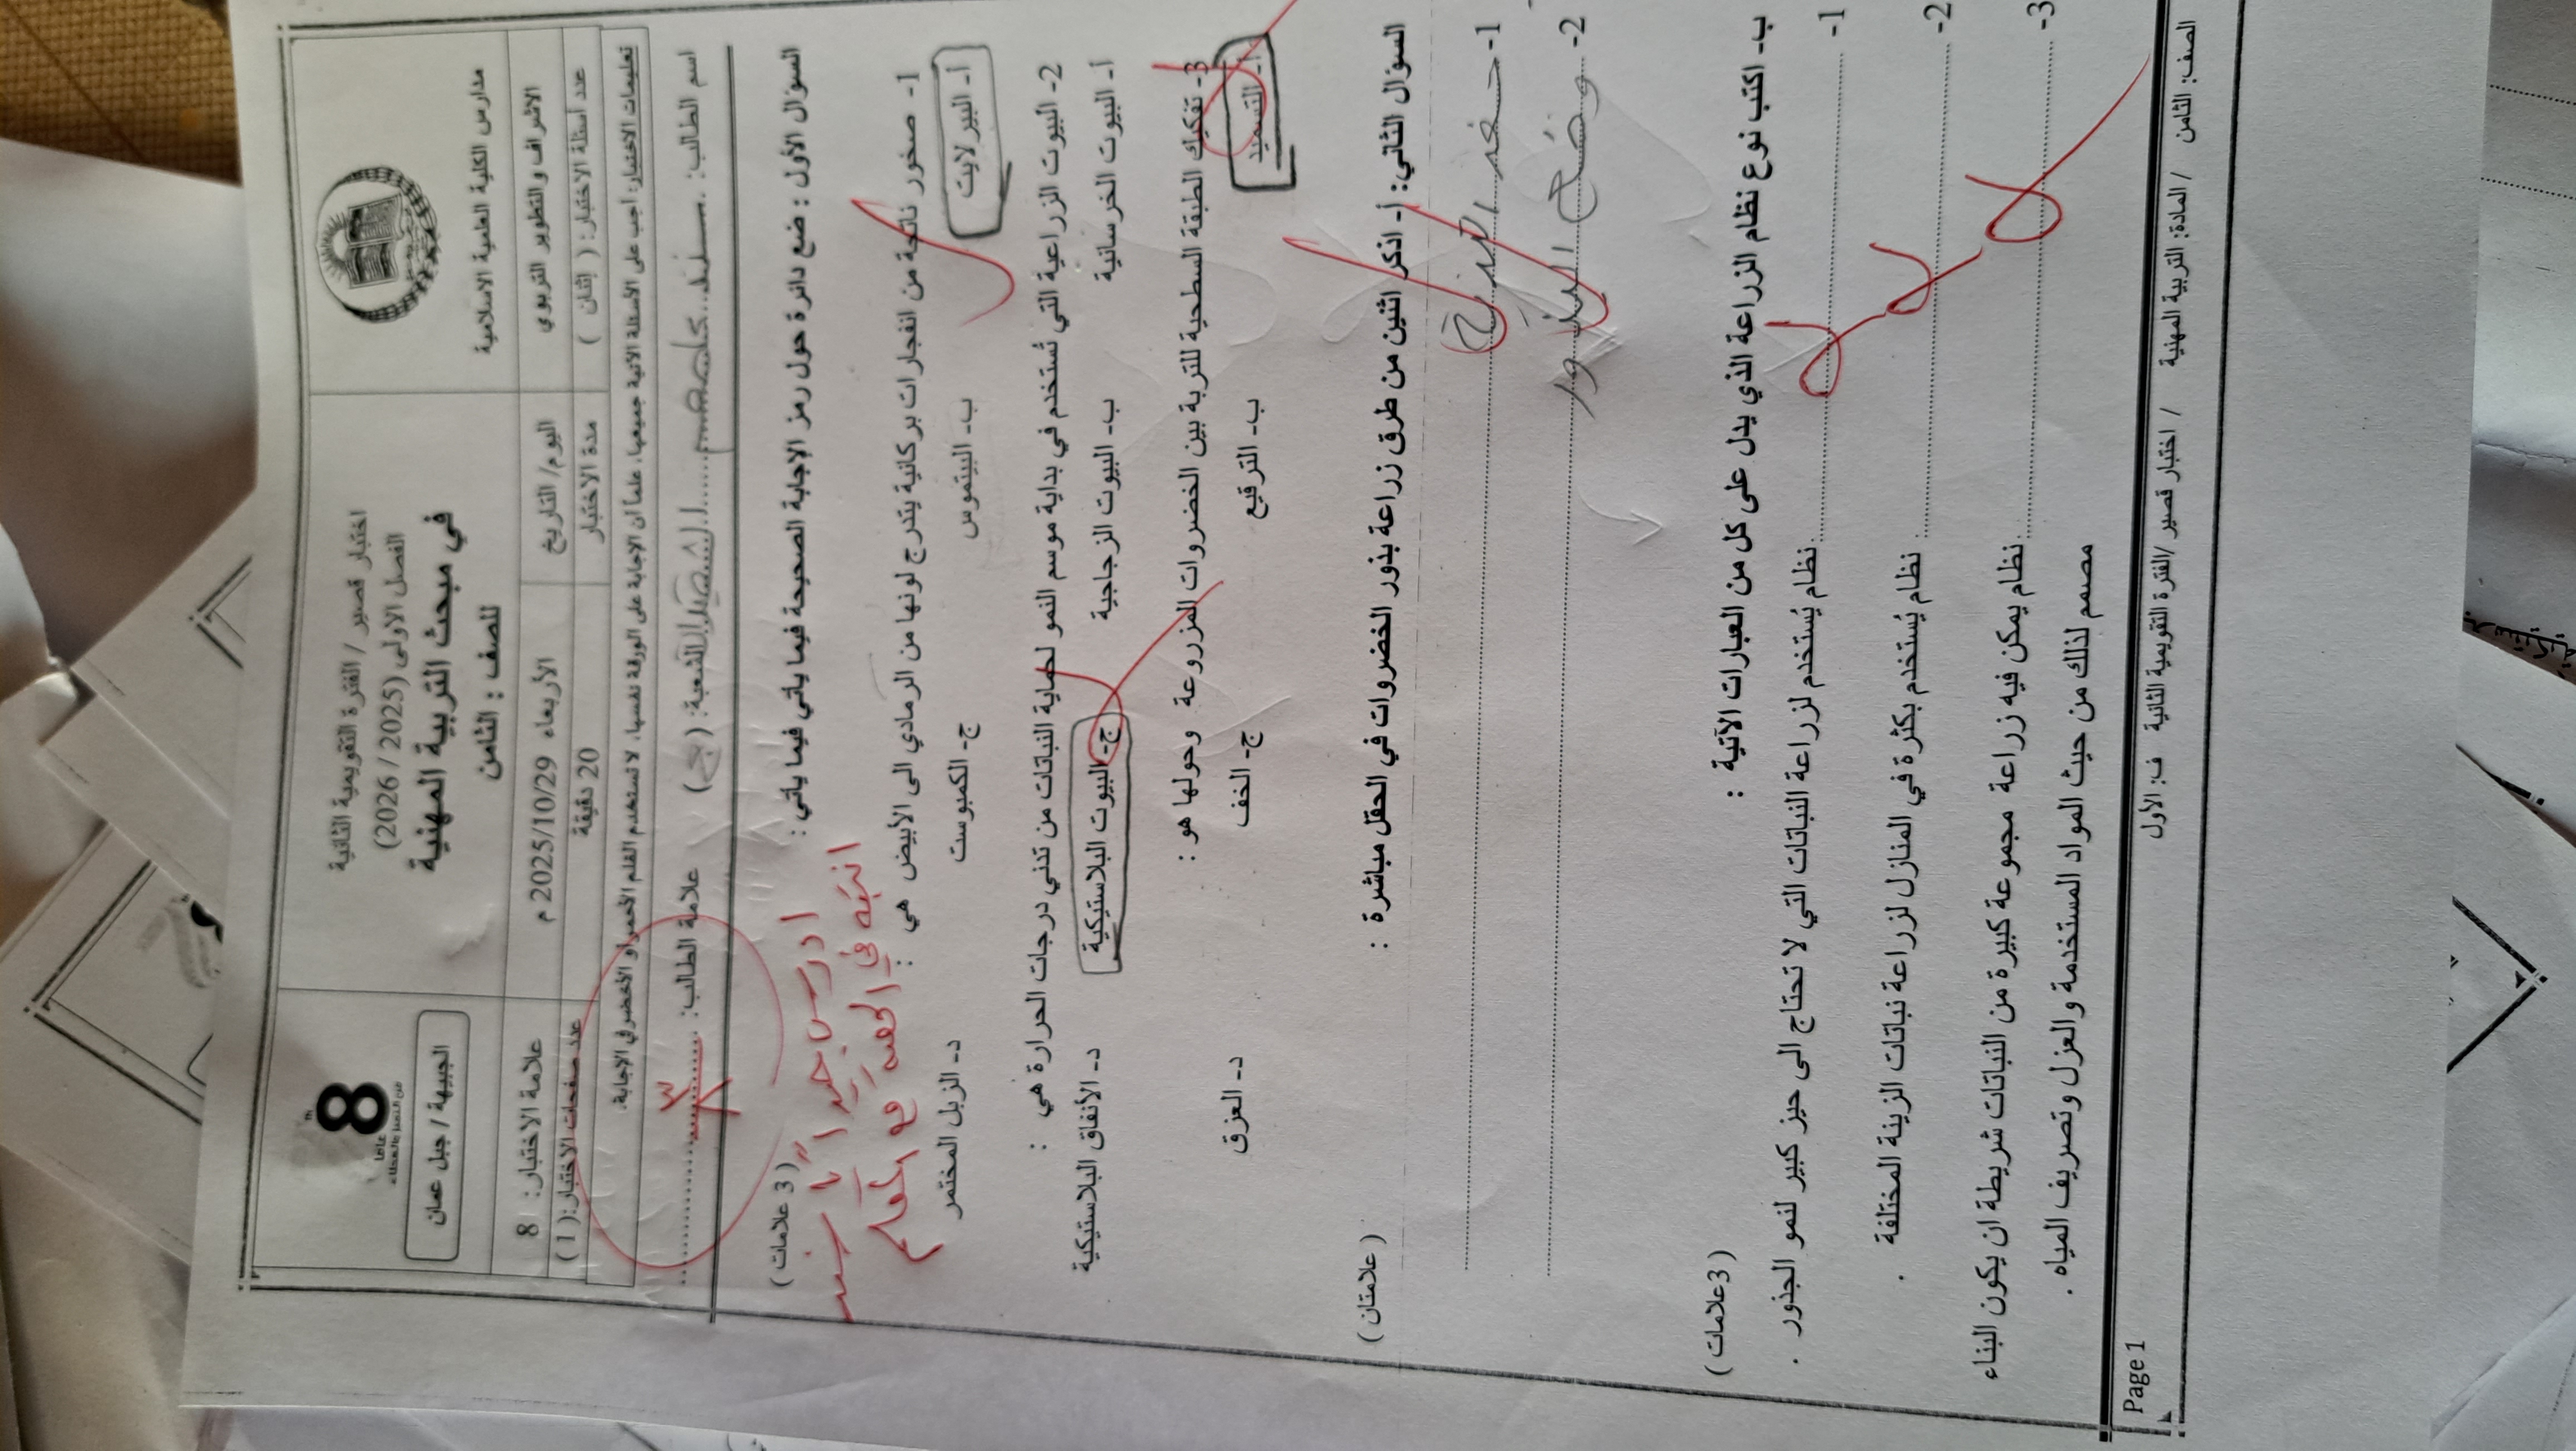 مدارس الكلية العلمية الاسلامية
اختبار قصير / الفترة التقويمية الثانية
الفصل الاولى (2025 / 2026)
في مبحث التربية المهنية
للصف : الثامن
8
الجبيهة / جبل عمان
الاشراف والتطوير التربوي
اليوم/ التاريخ
الأربعاء 2025/10/29 م
علامة الاختبار: 8
عدد أسئلة الاختبار: ( إثنان )
مدة الاختبار
20 دقيقة
عدد صفحات الاختبار:( 1 )
تعليمات الاختبار: أجب على الأسئلة الآتية جميعها، علماً أن الإجابة على الورقة نفسها، لا تستخدم القلم الأحمر أو الأخضر في الإجابة.
اسم الطالب: الشعبة: ( ) علامة الطالب:
السؤال الأول : ضع دائرة حول رمز الإجابة الصحيحة فيما يأتي فيما يأتي : ( 3 علامات )
ادرس جيداً يا سند
انتبه في الحصة مع المعلم
1- صخور ناتجة من انفجارات بركانية يتدرج لونها من الرمادي الى الأبيض هي :
أ- البيرلايت ب- البيتموس ج- الكمبوست د- الزبل المختمر
2- البيوت الزراعية التي تُستخدم في بداية موسم النمو لحماية النباتات من تدني درجات الحرارة هي :
أ- البيوت الخرسانية ب- البيوت الزجاجية ج- البيوت البلاستيكية د- الأنفاق البلاستيكية
3- تفكيك الطبقة السطحية للتربة بين الخضروات المزروعة وحولها هو :
أ- التسميد ب- الترقيع ج- الخف د- العزق
السؤال الثاني: أ- اذكر اثنين من طرق زراعة بذور الخضروات في الحقل مباشرة : ( علامتان )
1- حفر
2- وضع البذور
ب- اكتب نوع نظام الزراعة الذي يدل على كل من العبارات الآتية : (3علامات )
1- نظام يُستخدم لزراعة النباتات التي لا تحتاج الى حيز كبير لنمو الجذور .
2- نظام يُستخدم بكثرة في المنازل لزراعة نباتات الزينة المختلفة .
3- نظام يمكن فيه زراعة مجموعة كبيرة من النباتات شريطة ان يكون البناء
مصمم لذلك من حيث المواد المستخدمة والعزل وتصريف المياه .
الصف: الثامن / المادة: التربية المهنية / اختبار قصير /الفترة التقويمية الثانية ف: الأول
Page 1